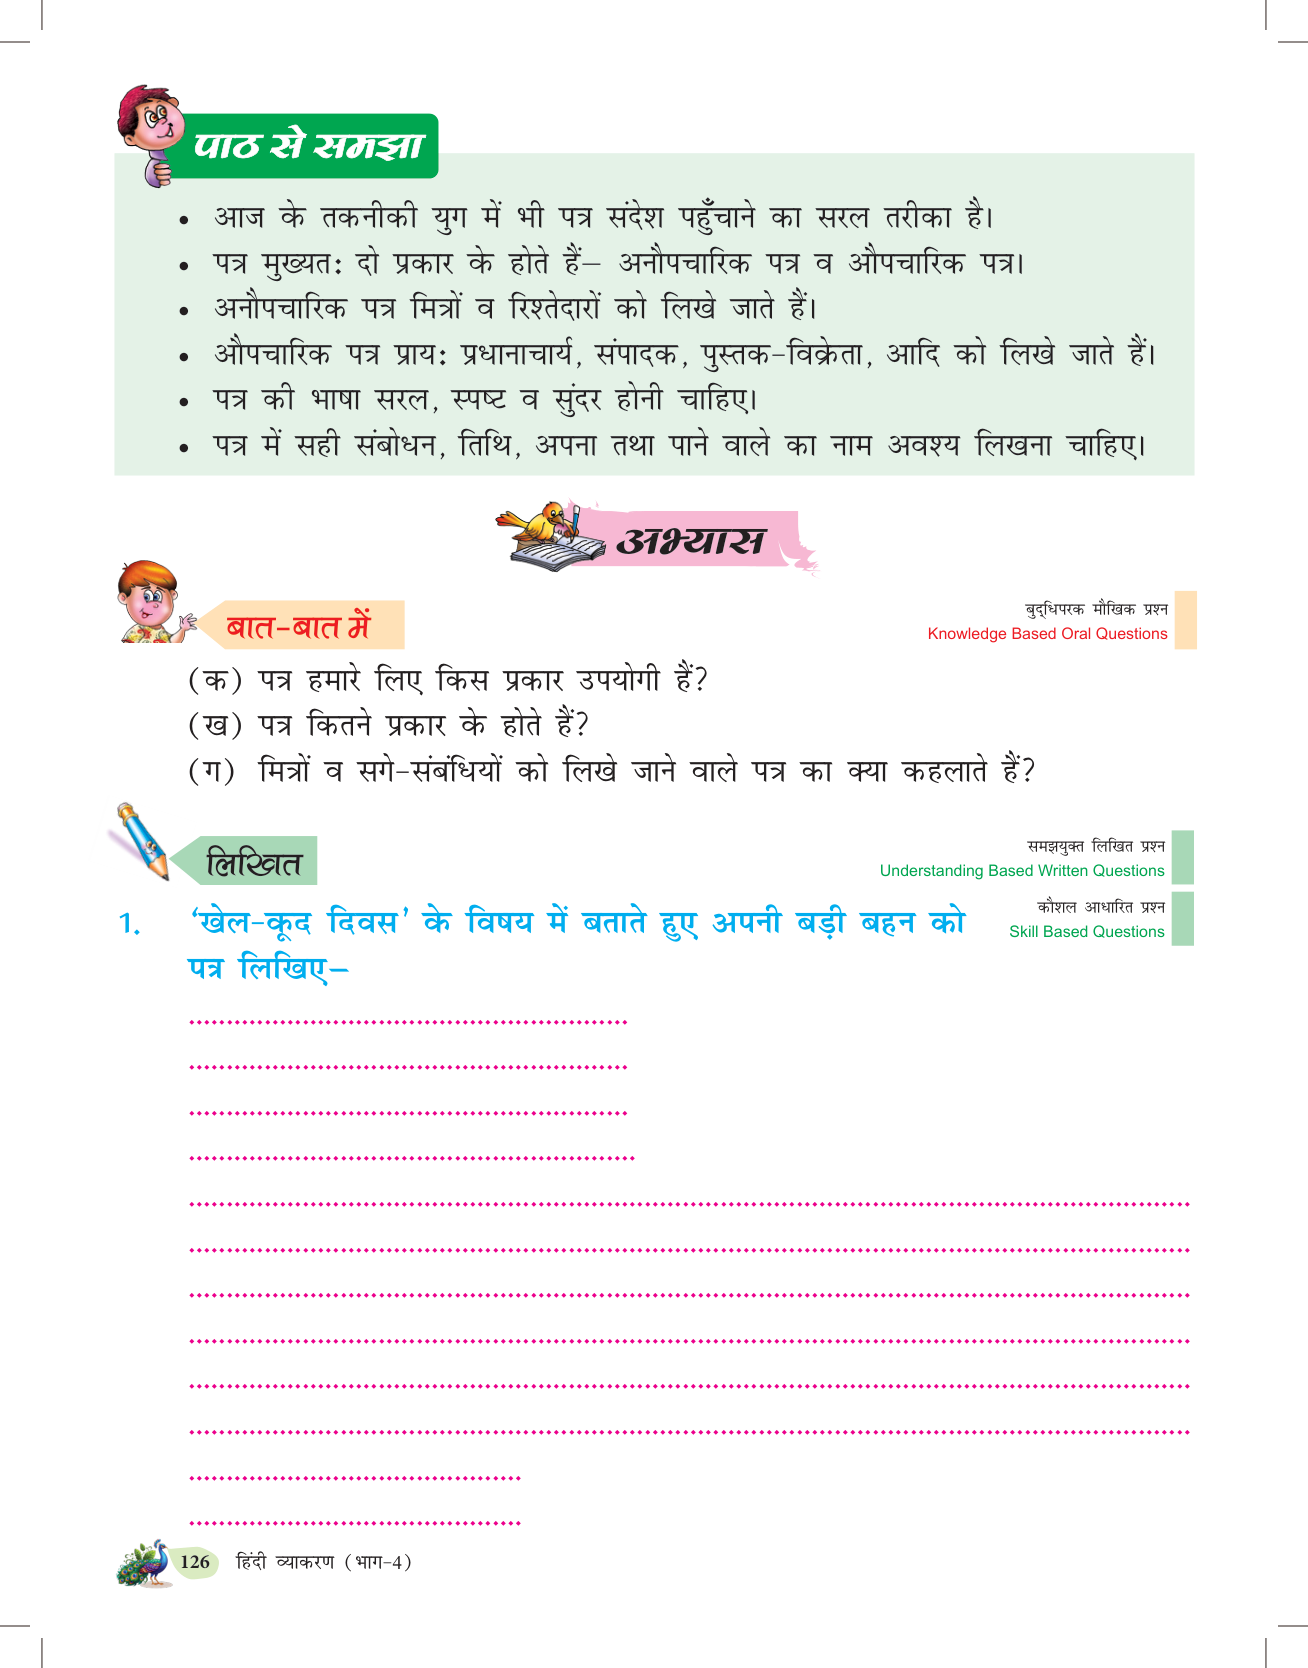 पाठ से समझा
• आज के तकनीकी युग में भी पत्र संदेश पहुँचाने का सरल तरीका है।
• पत्र मुख्यतः दो प्रकार के होते हैं– अनौपचारिक पत्र व औपचारिक पत्र।
• अनौपचारिक पत्र मित्रों व रिश्तेदारों को लिखे जाते हैं।
• औपचारिक पत्र प्रायः प्रधानाचार्य, संपादक, पुस्तक-विक्रेता, आदि को लिखे जाते हैं।
• पत्र की भाषा सरल, स्पष्ट व सुंदर होनी चाहिए।
• पत्र में सही संबोधन, तिथि, अपना तथा पाने वाले का नाम अवश्य लिखना चाहिए।
अभ्यास
बात-बात में
बुद्‌धिपरक मौखिक प्रश्न
Knowledge Based Oral Questions
(क) पत्र हमारे लिए किस प्रकार उपयोगी हैं?
(ख) पत्र कितने प्रकार के होते हैं?
(ग) मित्रों व सगे-संबंधियों को लिखे जाने वाले पत्र का क्या कहलाते हैं?
लिखित
समझयुक्त लिखित प्रश्न
Understanding Based Written Questions
कौशल आधारित प्रश्न
Skill Based Questions
1. ‘खेल-कूद दिवस’ के विषय में बताते हुए अपनी बड़ी बहन को
पत्र लिखिए–
126 हिंदी व्याकरण (भाग-4)